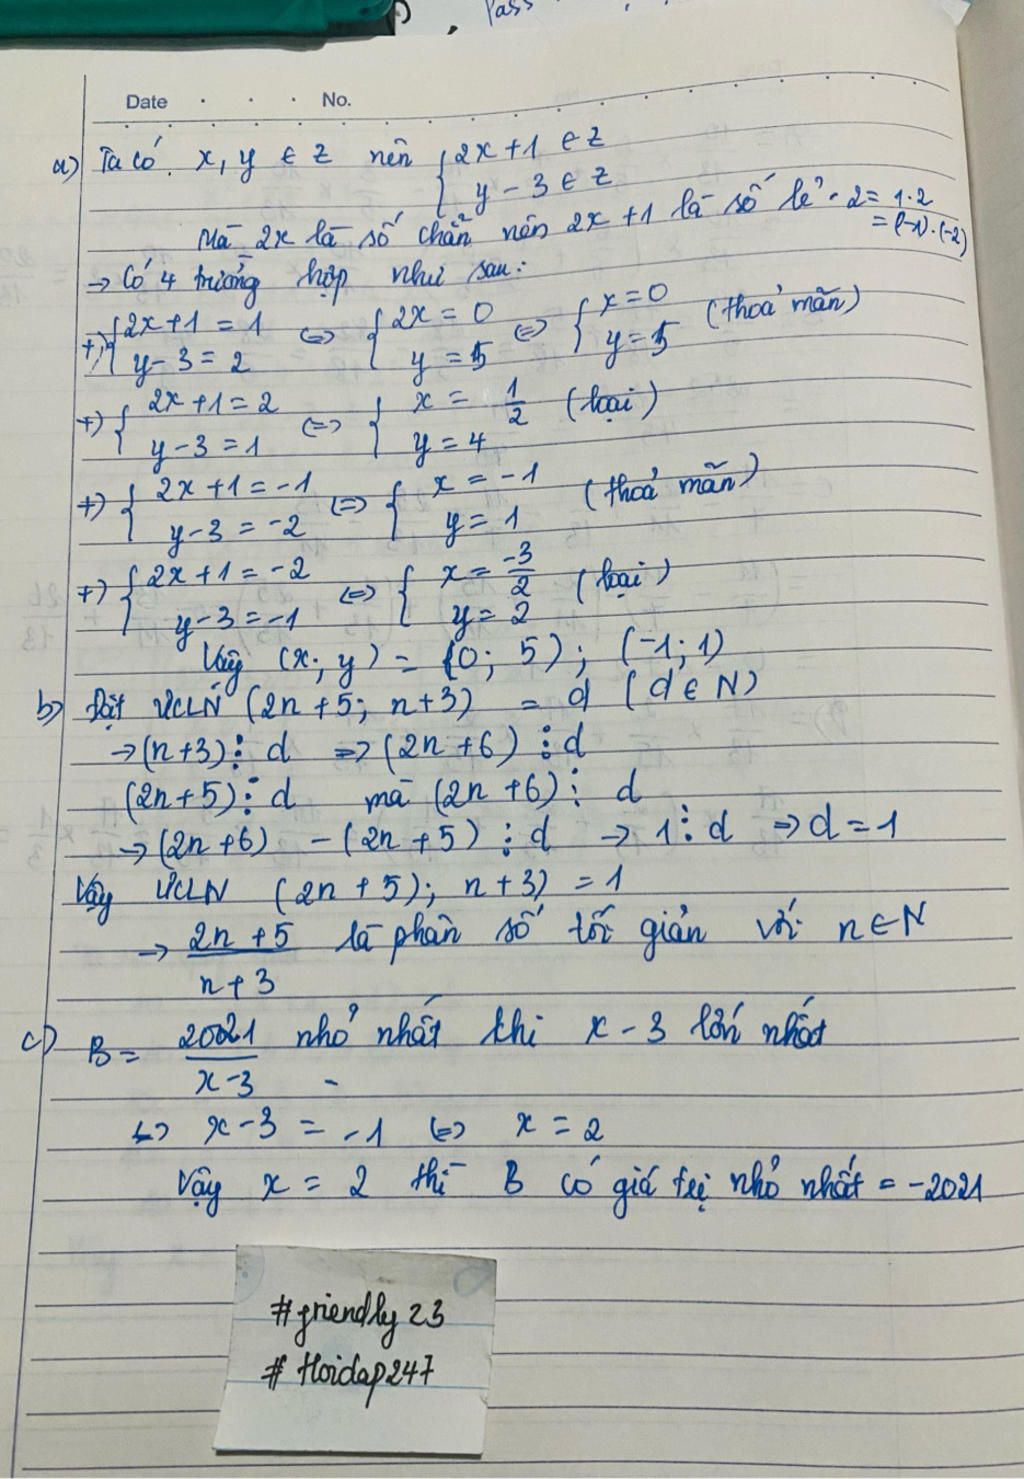 Pass
Date . . . No.
a) Ta có: x, y ∈ Z nên { 2x+1 ∈ Z
y - 3 ∈ Z
Mà 2x là số chẵn nên 2x +1 là số lẻ. 2 = 1.2
= (-1).(-2)
→ Có 4 trường hợp như sau:
+) { 2x+1 = 1 ⇔ { 2x = 0 ⇔ { x = 0 (thoả mãn)
y-3 = 2 y = 5 y = 5
+) { 2x+1 = 2 ⇔ { x = 1/2 (loại)
y-3 = 1 y = 4
+) { 2x+1 = -1 ⇔ { x = -1 (thoả mãn)
y-3 = -2 y = 1
+) { 2x+1 = -2 ⇔ { x = -3/2 (loại)
y-3 = -1 y = 2
Vậy (x; y) = (0; 5); (-1; 1)
b) Đặt ƯCLN (2n+5; n+3) = d (d ∈ N)
→ (n+3) ⋮ d => (2n+6) ⋮ d
(2n+5) ⋮ d mà (2n+6) ⋮ d
→ (2n+6) - (2n+5) ⋮ d → 1 ⋮ d => d = 1
Vậy ƯCLN (2n+5); n+3) = 1
→ 2n+5 là phân số tối giản với n ∈ N
n+3
c) B = 2021 nhỏ nhất khi x - 3 lớn nhất
x-3
↔ x-3 = -1 ⇔ x = 2
Vậy x = 2 thì B có giá trị nhỏ nhất = -2021
#friendly23
#Hoidap247